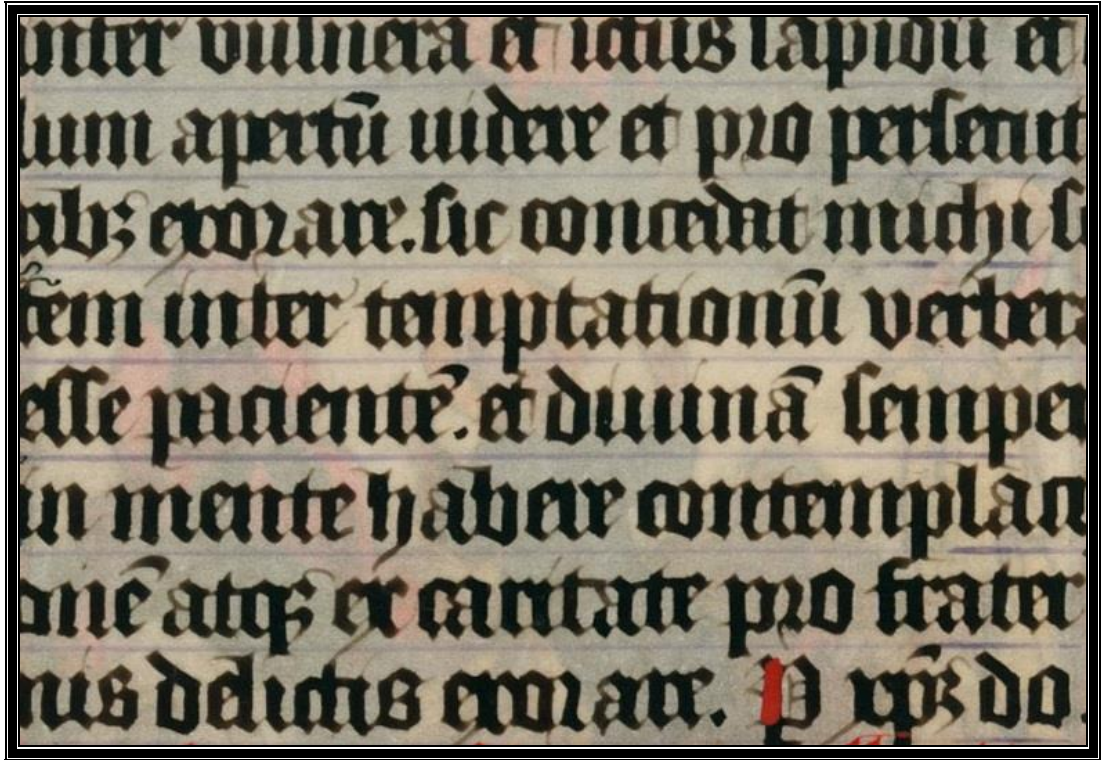 inter vulnera et ictus lapidū et
lum apertū uidere et pro persecut
ibꝫ exorare. sic concedat michi
tem inter temptationū verbera
esse pacientē. et diuinā semper
in mente habere contemplati
onē atqꝫ ex caritate pro frater
nis delictis exorare. P xp̄m do